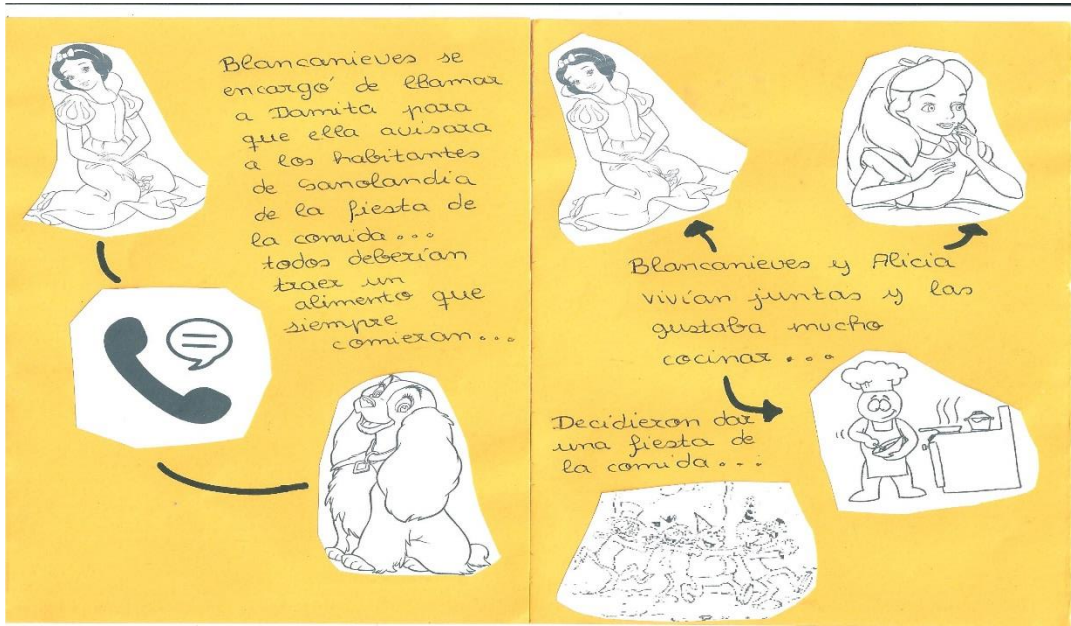 Blancanieves se
encargó de llamar
a Damita para
que ella avisara
a los habitantes
de Sanolandia
de la fiesta de
la comida...
todos deberían
traer un
alimento que
siempre
comieran...
Blancanieves y Alicia
vivían juntas y las
gustaba mucho
cocinar...
Decidieron dar
una fiesta de
la comida...